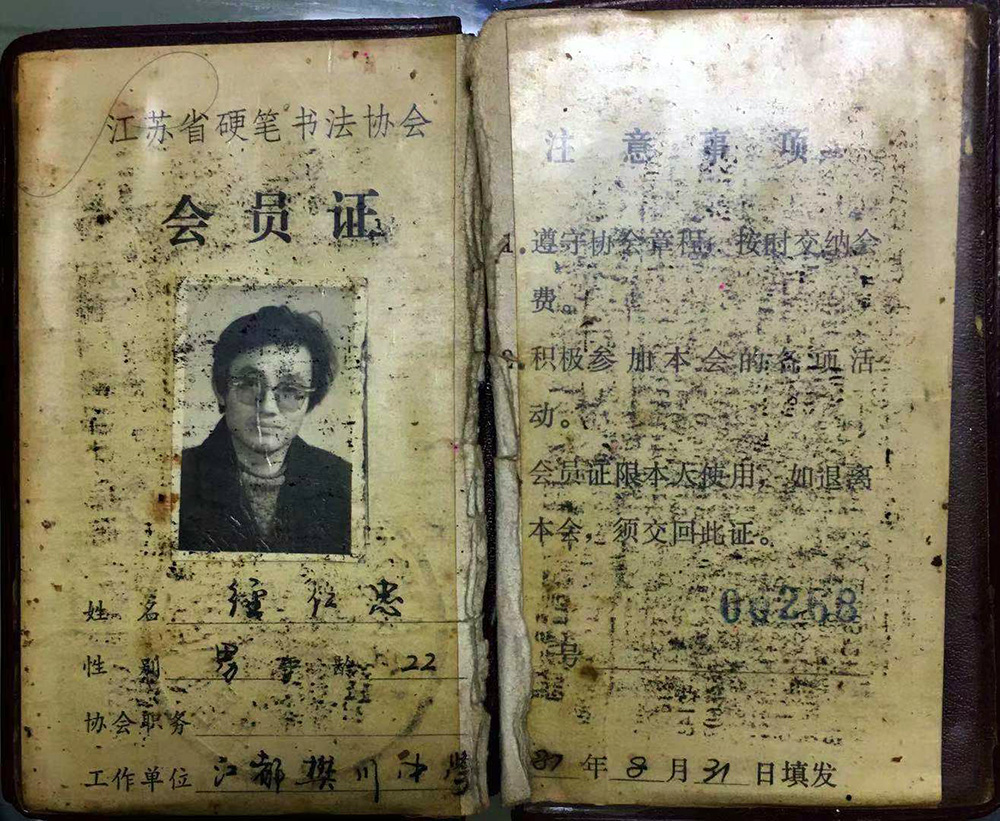 江苏省硬笔书法协会
会员证
姓名 忠
性别 男 年龄 22
协会职务
工作单位 江都樊川中学
注意事项
1.遵守协会章程，按时交纳会
费。
2.积极参加本会的各项活
动。
会员证限本人使用，如退离
本会，须交回此证。
00268
号
87年8月31日填发